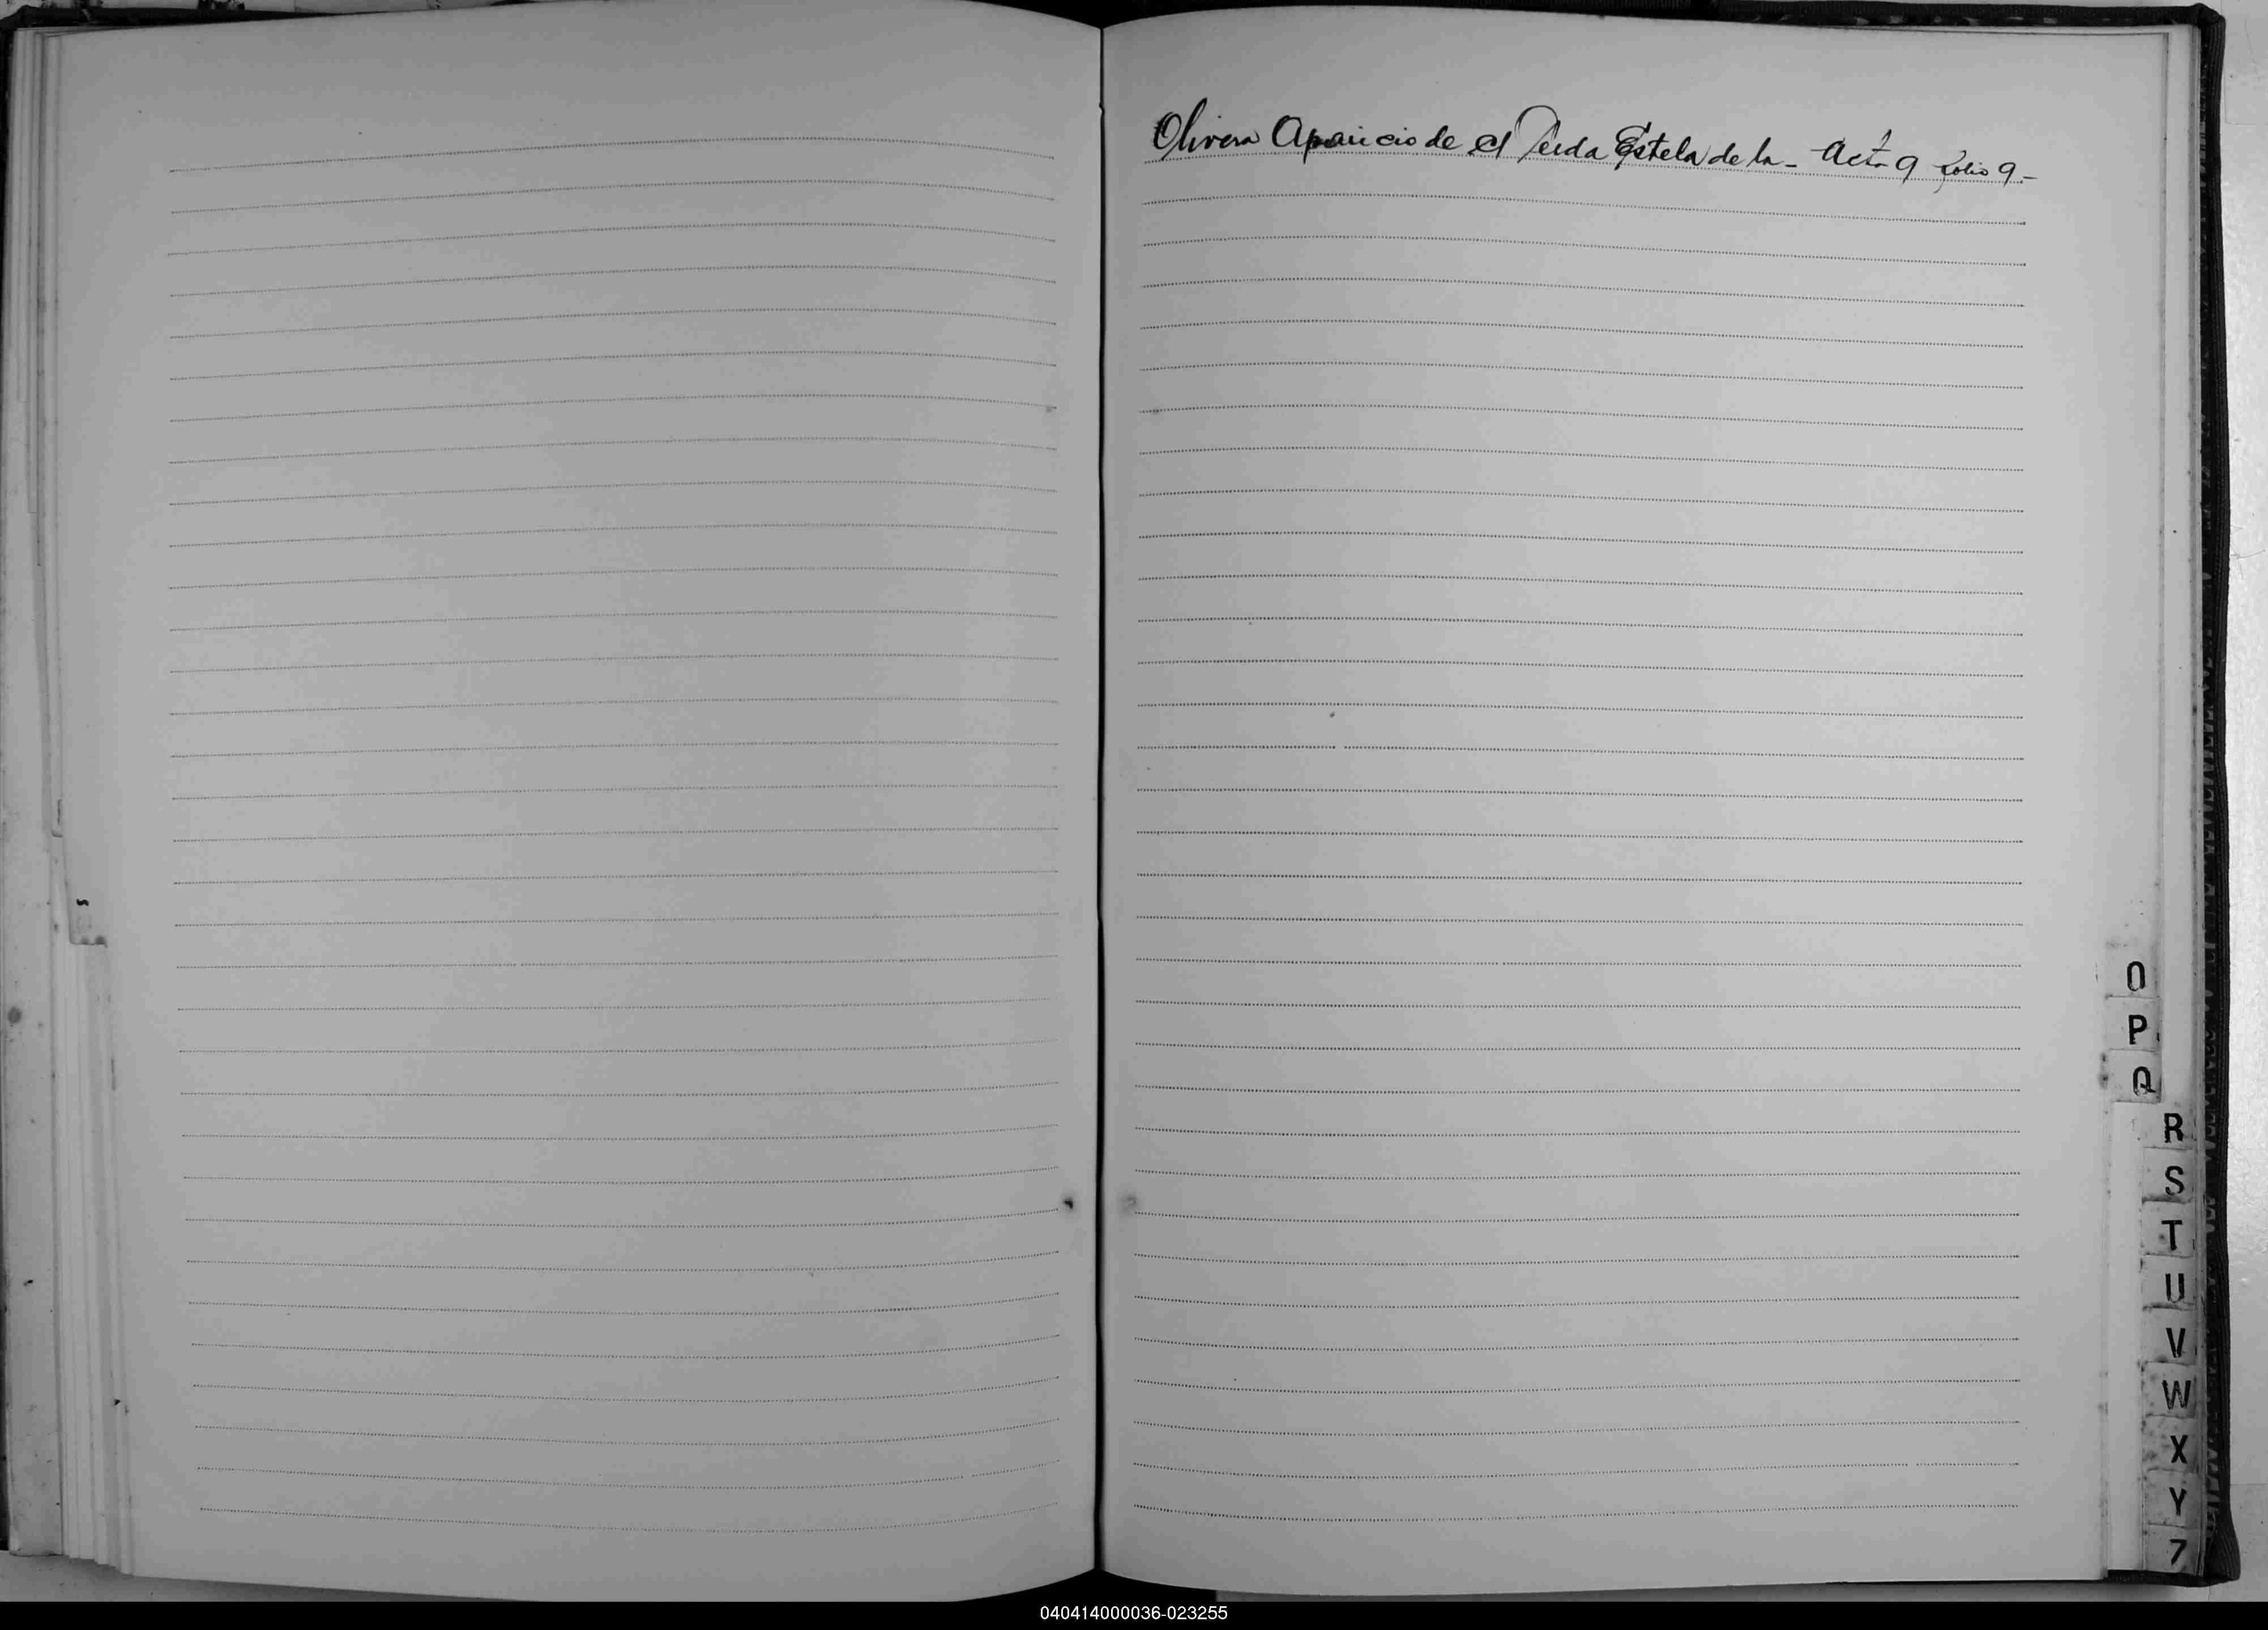 Olivera Aparicio de el Perda Estela de la - Act. 9 folio 9 -
O
P
Q
R
S
T
U
V
W
X
Y
Z
040414000036-023255